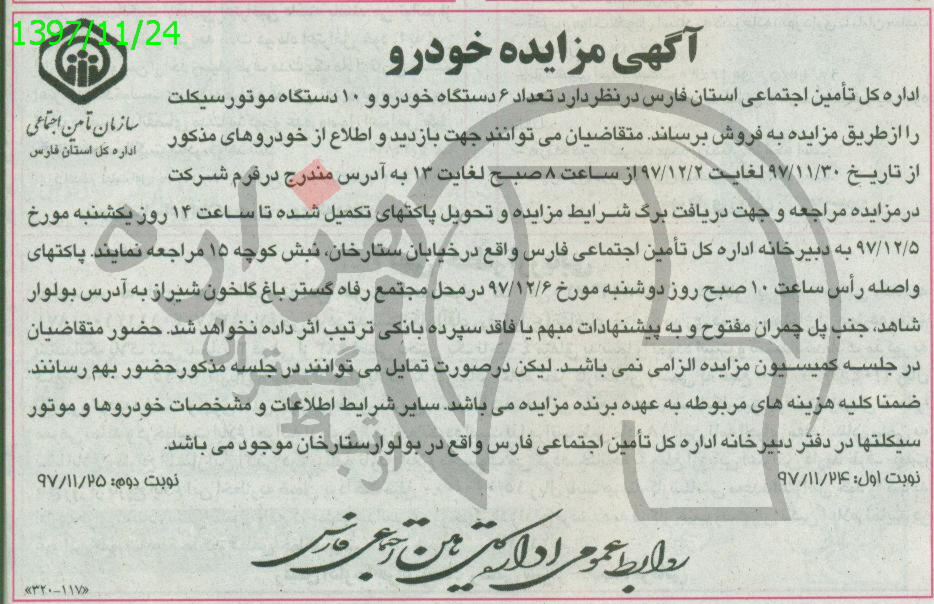 1397/11/24
آگهی مزایده خودرو
سازمان تأمین اجتماعی
اداره کل استان فارس
اداره کل تأمین اجتماعی استان فارس در نظر دارد تعداد ۶ دستگاه خودرو و ۱۰ دستگاه موتور سیکلت
را از طریق مزایده به فروش برساند. متقاضیان می توانند جهت بازدید و اطلاع از خودروهای مذکور
از تاریخ ۹۷/۱۱/۳۰ لغایت ۹۷/۱۲/۲ از ساعت ۸ صبح لغایت ۱۳ به آدرس مندرج در فرم شرکت
در مزایده مراجعه و جهت دریافت برگ شرایط مزایده و تحویل پاکتهای تکمیل شده تا ساعت ۱۴ روز یکشنبه مورخ
۹۷/۱۲/۵ به دبیرخانه اداره کل تأمین اجتماعی فارس واقع در خیابان ستارخان، نبش کوچه ۱۵ مراجعه نمایند. پاکتهای
واصله رأس ساعت ۱۰ صبح روز دوشنبه مورخ ۹۷/۱۲/۶ در محل مجتمع رفاه گستر باغ گلخون شیراز به آدرس بولوار
شاهد، جنب پل چمران مفتوح و به پیشنهادات مبهم یا فاقد سپرده بانکی ترتیب اثر داده نخواهد شد. حضور متقاضیان
در جلسه کمیسیون مزایده الزامی نمی باشد. لیکن درصورت تمایل می توانند در جلسه مذکور حضور بهم رسانند.
ضمنا کلیه هزینه های مربوطه به عهده برنده مزایده می باشد. سایر شرایط اطلاعات و مشخصات خودروها و موتور
سیکلتها در دفتر دبیرخانه اداره کل تأمین اجتماعی فارس واقع در بولوار ستارخان موجود می باشد.
نوبت اول: ۹۷/۱۱/۲۴
نوبت دوم: ۹۷/۱۱/۲۵
روابط عمومی اداره کل تامین اجتماعی فارس
«۳۲۰-۱۱۷»
هزاره